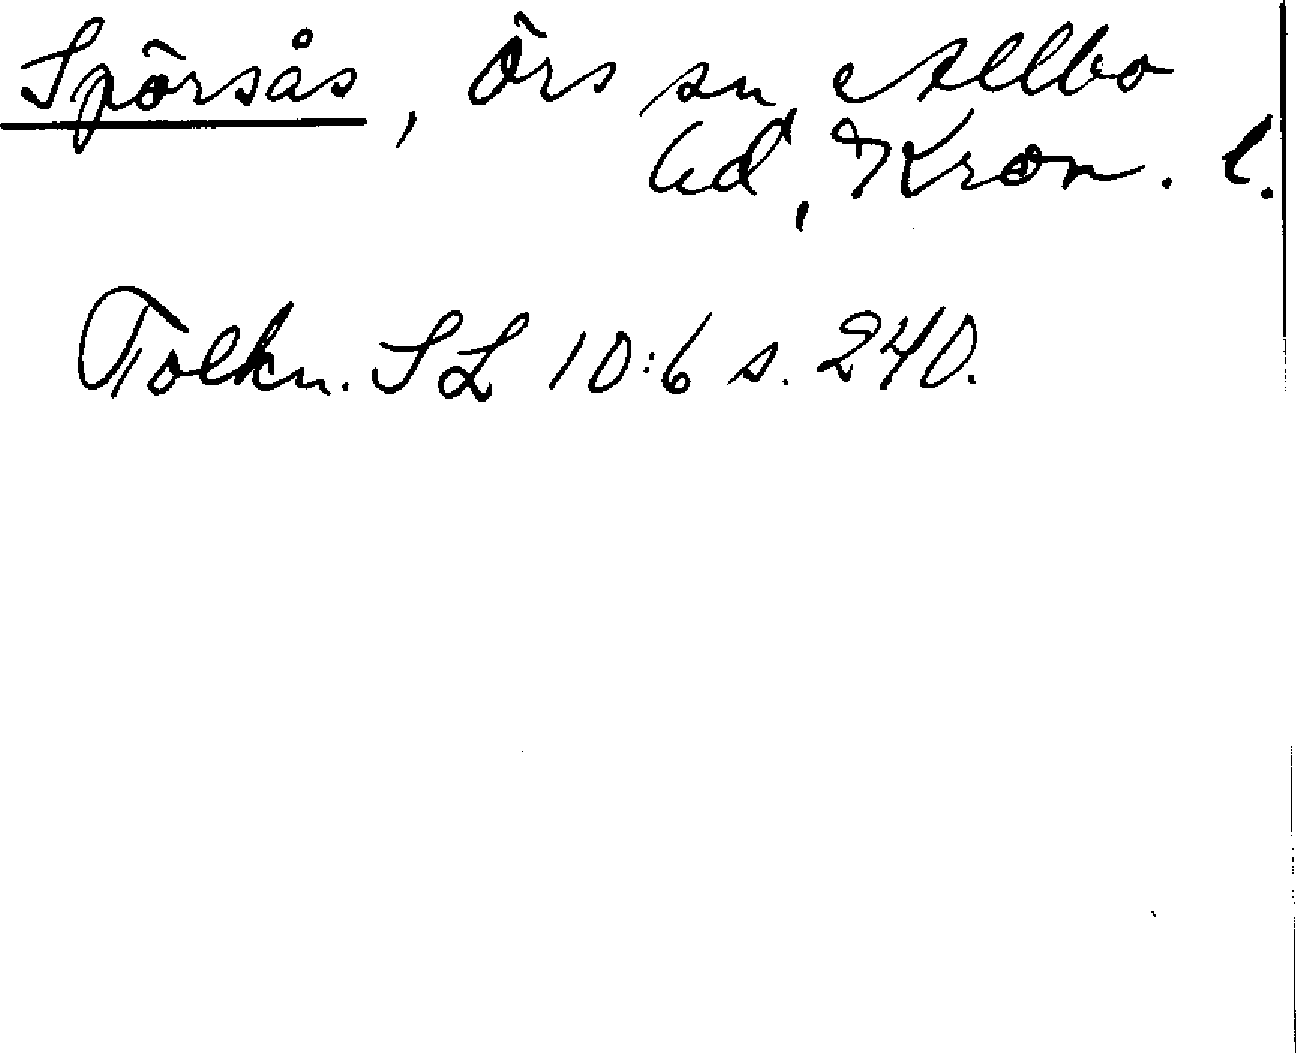 Spörsås, Örs sn, Allbo
hd, Kron. l.
Tolkn. SL 10:6 s. 240.